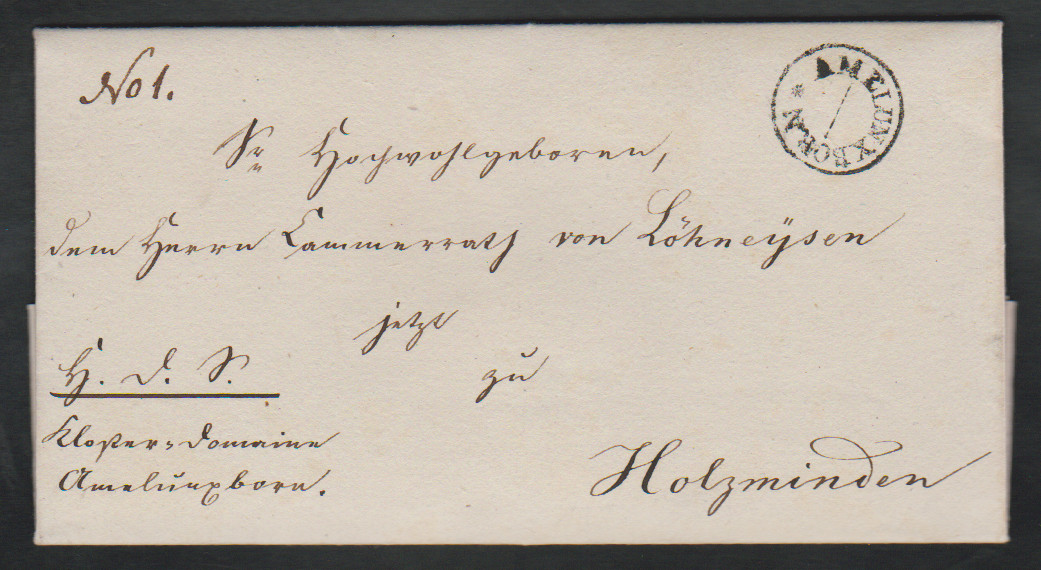 No 1.
AMELUNXBORN *
Sr Hochwohlgeboren,
dem Herrn Cammerrath von Löhneysen
jetzt
H. d. S.
zu
Kloster=Domaine
Amelunxborn.
Holzminden